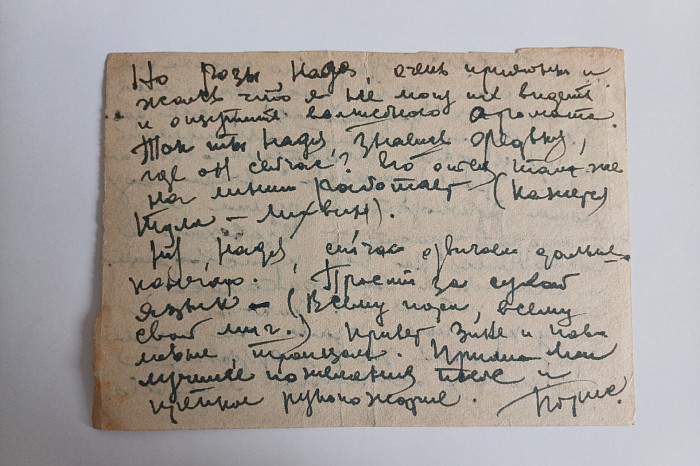 Но розы, Надя, очень приятны и
жалко что я не могу их видеть
и ощутить волшебного аромата.
Так ты, Надя, знаешь
где он сейчас? Его отец там же
на линии работает (кажется
Тула – Лихвин).
Надя, сейчас дальне-
Прости за сухой
язык – (Всему пора, всему
свой миг..) Привет Зине и
Прими мои
лучшие пожелания тебе и
крепкое рукопожатие. Борис.